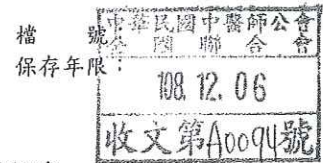 檔　　號：
保存年限：
中華民國中醫師公會
全國聯合會
108. 12. 06
收文第A0094號